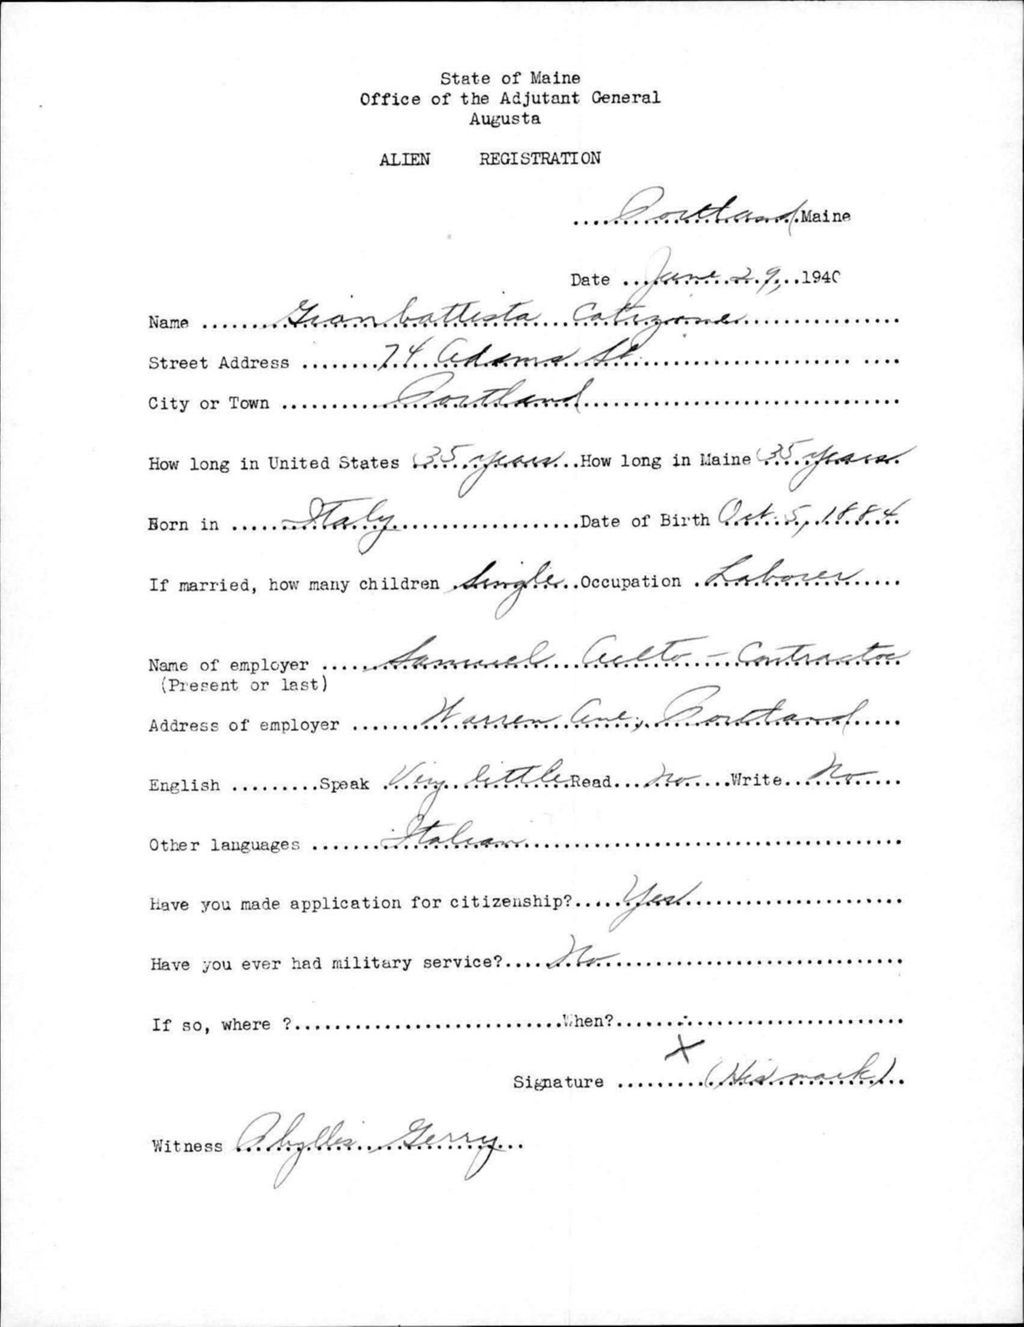 State of Maine
Office of the Adjutant General
Augusta
ALIEN REGISTRATION
Portland Maine
Date June 29, 1940
Name Gianbattista Catizone
Street Address 74 Adams St.
City or Town Portland
How long in United States 35 years How long in Maine 35 years
Born in Italy Date of Birth Oct. 5, 1884
If married, how many children Single Occupation Laborer
Name of employer Samuel Aceto - Contractor
(Present or last)
Address of employer Warren Ave, Portland
English Speak Very little Read No Write No
Other languages Italian
Have you made application for citizenship? Yes
Have you ever had military service? No
If so, where ? When?
X
Signature (His mark)
Witness Phyllis Gerry